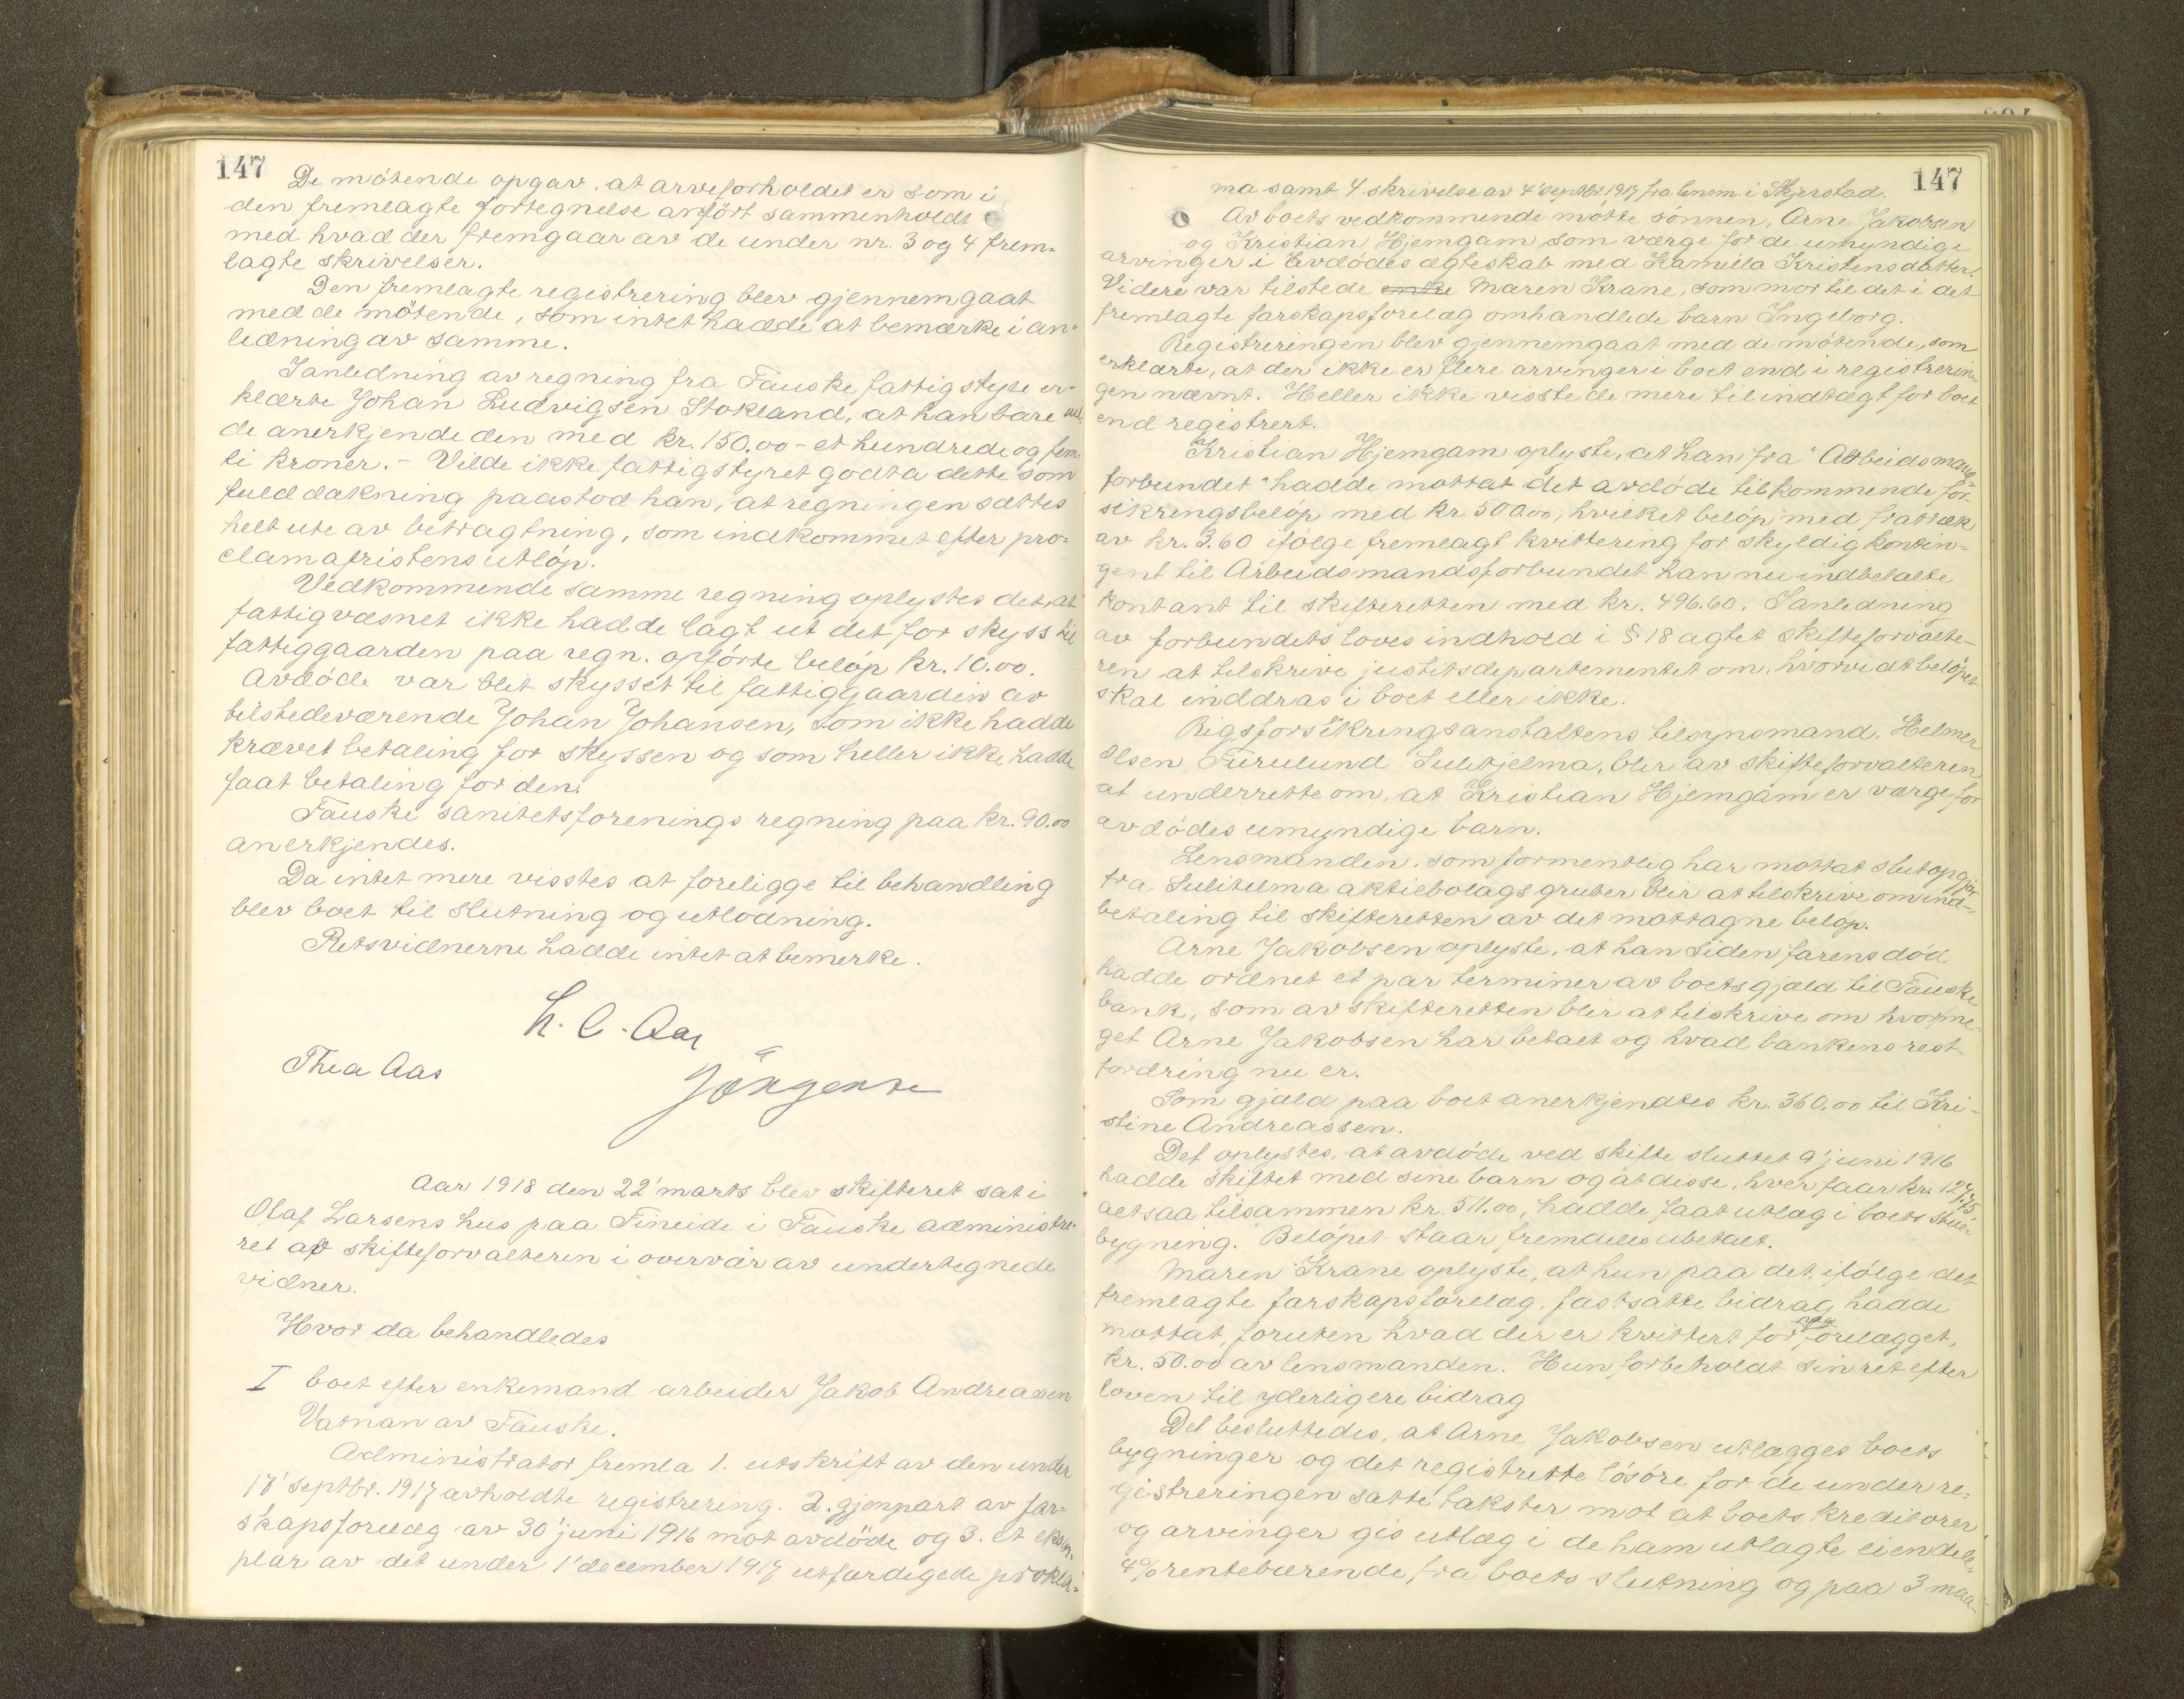 147
De mötende opgav, at arveforholdet er som i
den fremlagte fortegnelse anfört sammenholdt
med hvad der fremgaar av de under nr. 3 og 4 frem-
lagte skrivelser.
Den fremlagte registrering blev gjennemgaat
med de mötende, som intet hadde at bemærke i an-
ledning av samme.
I anledning av regning fra Fauske fattigstyre er-
klærte Johan Ludvigsen Stokland, at han bare vil-
de anerkjende den med kr. 150.00 - et hundrede og fem-
ti kroner. - Vilde ikke fattigstyret godta dette som
fuld dækning paastod han, at regningen sættes
helt ute av betragtning, som indkommet efter pro-
clamafristens utlöp.
Vedkommende samme regning oplystes det, at
fattigvæsnet ikke hadde lagt ut det for skyss til
fattiggaarden paa regn. opförte belöp kr. 10.00.
Avdöde var blit skysset til fattiggaarden av
tilstedeværende Johan Johansen, som ikke hadde
krævet betaling for skyssen og som heller ikke hadde
faat betaling for den.
Fauske sanitetsforenings regning paa kr. 90.00
anerkjendes.
Da intet mere visstes at foreligge til behandling
blev boet til slutning og utlodning.
Retsvidnerne hadde intet at bemerke.
H. C. Aas
Thea Aas
Jörgensen
Aar 1918 den 22' marts blev skifteret sat i
Olaf Larsens hus paa Fineide i Fauske administre-
ret af skifteforvalteren i overvær av undertegnede
vidner.
Hvor da behandledes
I boet efter enkemand arbeider Jakob Andreassen
Vatnan av Fauske.
Administrator fremla 1. utskrift av den under
17' septbr. 1917 avholdte registrering. 2. gjenpart av far-
skapsforelæg av 30' juni 1916 mot avdöde og 3. et eksem-
plar av det under 1' december 1917 utfærdigede prokla-
147
ma samt 4 skrivelse av 4' septbr. 1917 fra lensm. i Skjerstad.
Av boets vedkommende mötte sönnen, Arne Jakobsen
og Kristian Hjemgam som værge for de umyndige
arvinger i avdödes ægteskab med Kamilla Kristensdatter.
Videre var tilstede enke Maren Krane, som mor til det i det
fremlagte farskapsforelæg omhandlede barn Ingeborg.
Registreringen blev gjennemgaat med de mötende, som
erklærte, at der ikke er flere arvinger i boet end i registrerin-
gen nævnt. Heller ikke visste de mere til indtægt for boet
end registrert.
Kristian Hjemgam oplyste, at han fra "Arbeidsmands-
forbundet" hadde mottat det avdöde tilkommende for-
sikringsbelöp med kr. 500.00, hvilket belöp med fratræk
av kr. 3.60 ifölge fremlagt kvittering for skyldig kontin-
gent til Arbeidsmandsforbundet han nu indbetalte
kontant til skifteretten med kr. 496.60. I anledning
av forbundets loves indhold i § 18 agtet skifteforvalte-
ren at tilskrive justitsdepartementet om, hvorvidt belöpet
skal inddras i boet eller ikke.
Rigsforsikringsanstaltens tilsynsmand, Helmer
Olsen Furulund Sulitjelma, blir av skifteforvalteren
at underrette om, at Kristian Hjemgam er værge for
avdödes umyndige barn.
Lensmanden, som formentlig har mottat slutopgjör
fra Sulitelma aktiebolags gruber blir at tilskrive om ind-
betaling til skifteretten av det mottagne belöp.
Arne Jakobsen oplyste, at han siden farens död
hadde ordnet et par terminer av boets gjæld til Fauske
bank, som av skifteretten blir at tilskrive om hvorme-
get Arne Jakobsen har betalt og hvad bankens rest-
fordring nu er.
Som gjæld paa boet anerkjendtes kr. 360.00 til Kri-
stine Andreassen.
Det oplystes, at avdöde ved skifte sluttet 9' juni 1916
hadde skiftet med sine barn og at disse, hver faar kr. 127.75
altsaa tilsammen kr. 511.00, hadde faat utlæg i boets stue-
bygning. Belöpet staar fremdeles ubetalt.
Maren Krane oplyste, at hun paa det, ifölge det
fremlagte farskapsforelæg, fastsatte bidrag hadde
mottat, foruten hvad der er kvittert for paa forelægget,
kr. 50.00 av lensmanden. Hun forbeholdt sin ret efter
loven til yderligere bidrag
Det besluttedes, at Arne Jakobsen utlægges boets
bygninger og det registrerte lösöre for de under re-
gistreringen satte takster mot at boets kreditorer
og arvinger gis utlæg i de ham utlagte eiendele,
4% rentebærende, fra boets slutning og paa 3 maa-